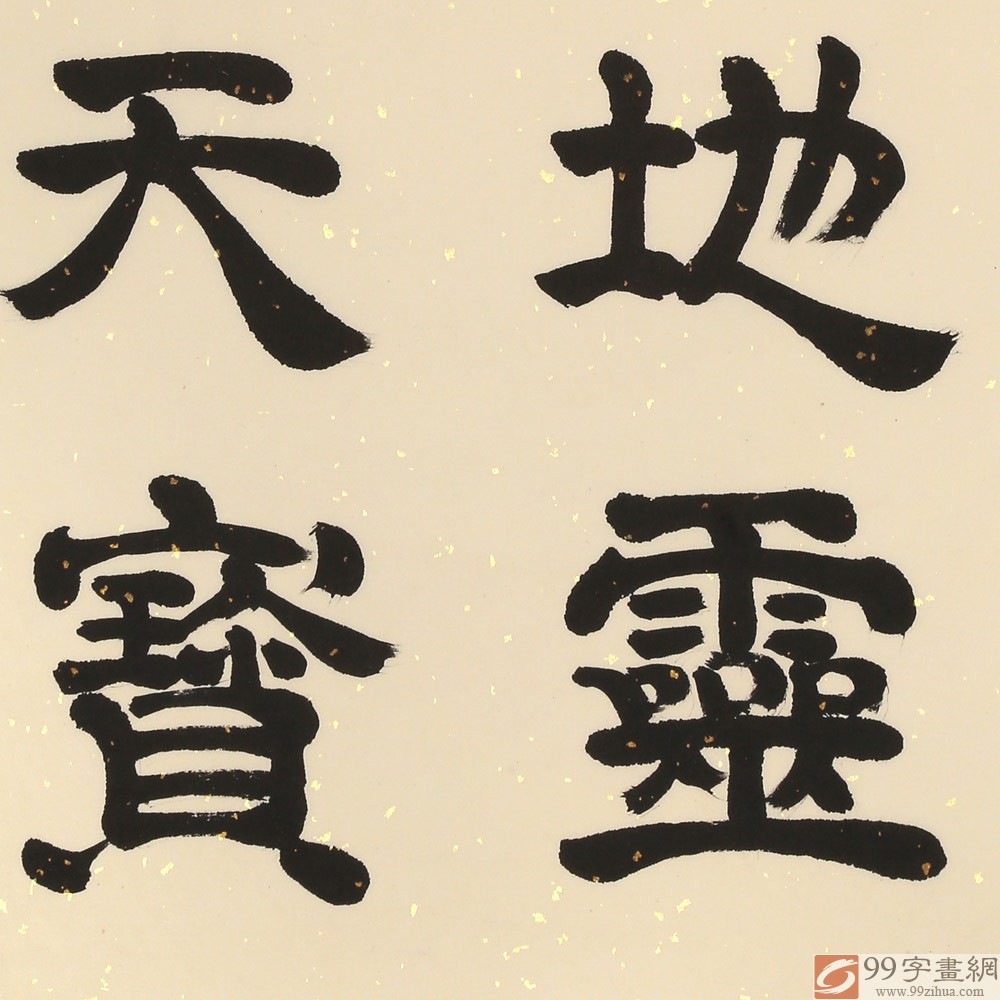 地靈
天寳
99字畫網
www.99zihua.com